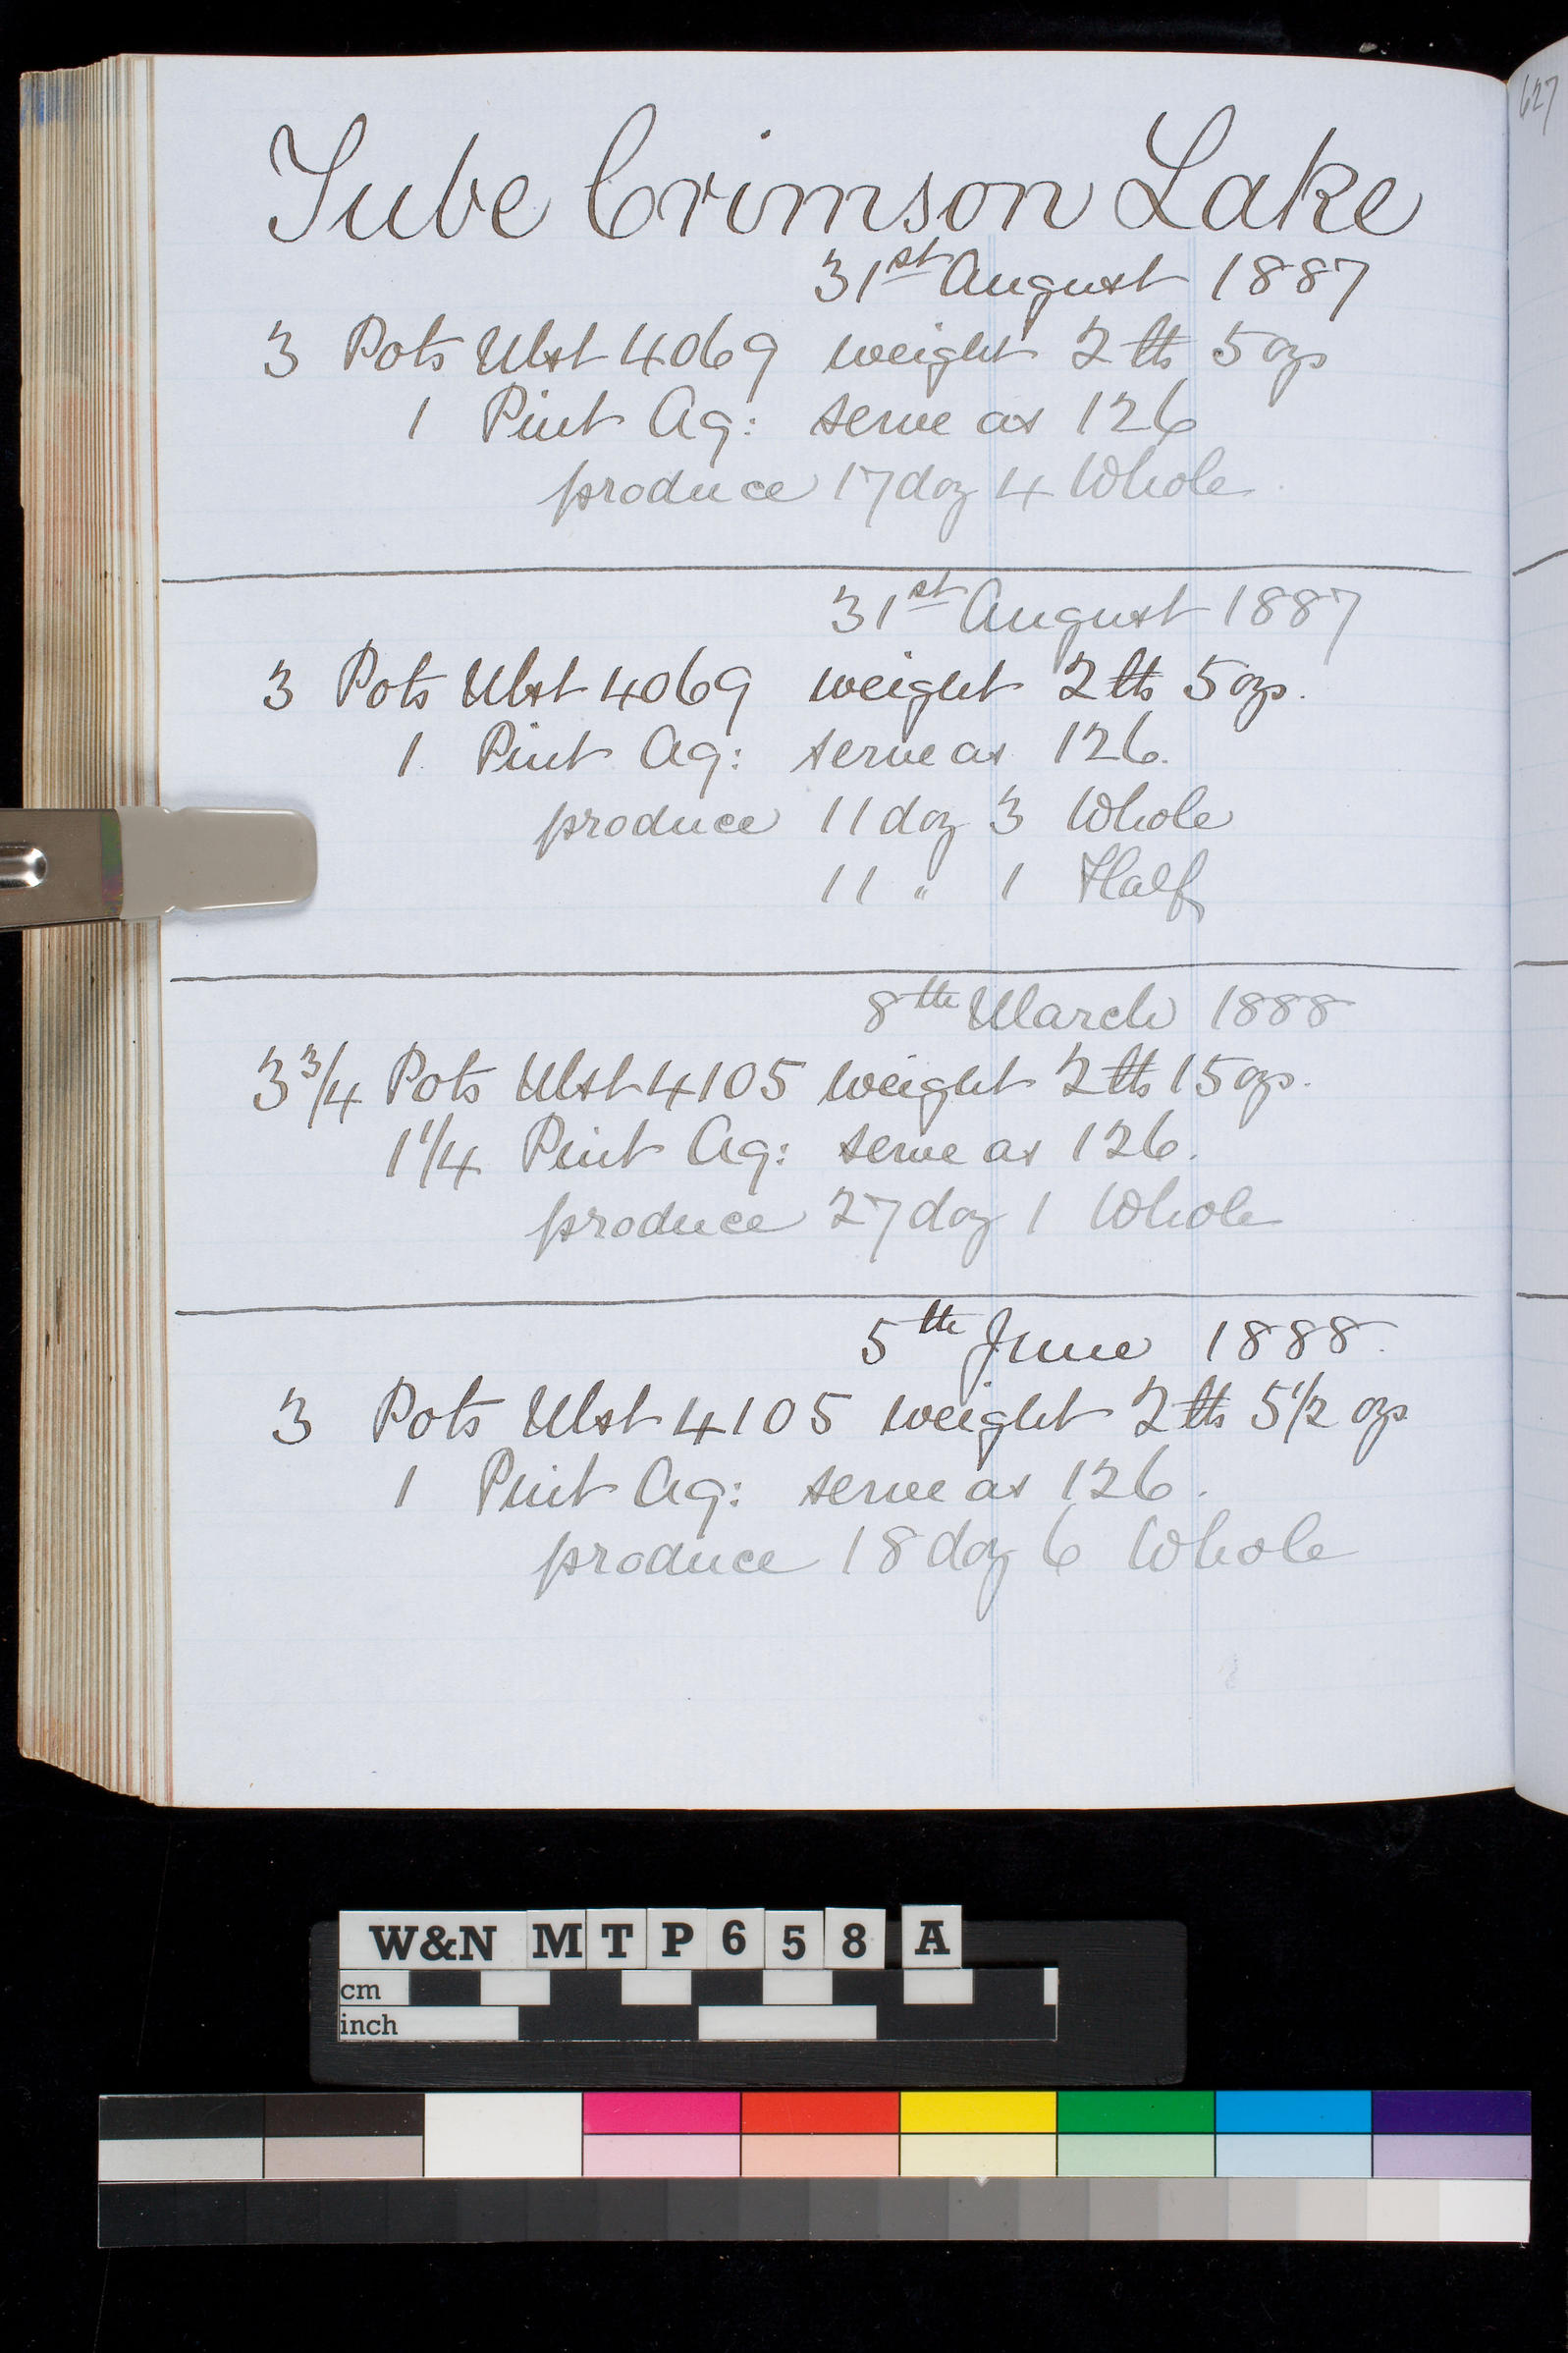 627
Tube Crimson Lake
31st August 1887
3 Pots Ulst 4069 weight 2 lbs 5 ozs
1 Pint Aq: serve as 126
produce 17 doz 4 Whole
31st August 1887
3 Pots Ulst 4069 weight 2 lbs 5 ozs.
1 Pint Aq: serve as 126.
produce 11 doz 3 Whole
11 " 1 Half
8th March 1888
3 3/4 Pots Ulst 4105 weight 2 lbs 15 ozs.
1 1/4 Pint Aq: serve as 126.
produce 27 doz 1 Whole
5th June 1888.
3 Pots Ulst 4105 weight 2 lbs 5 1/2 ozs
1 Pint Aq: serve as 126.
produce 18 doz 6 Whole
W&N MTP658 A
cm
inch